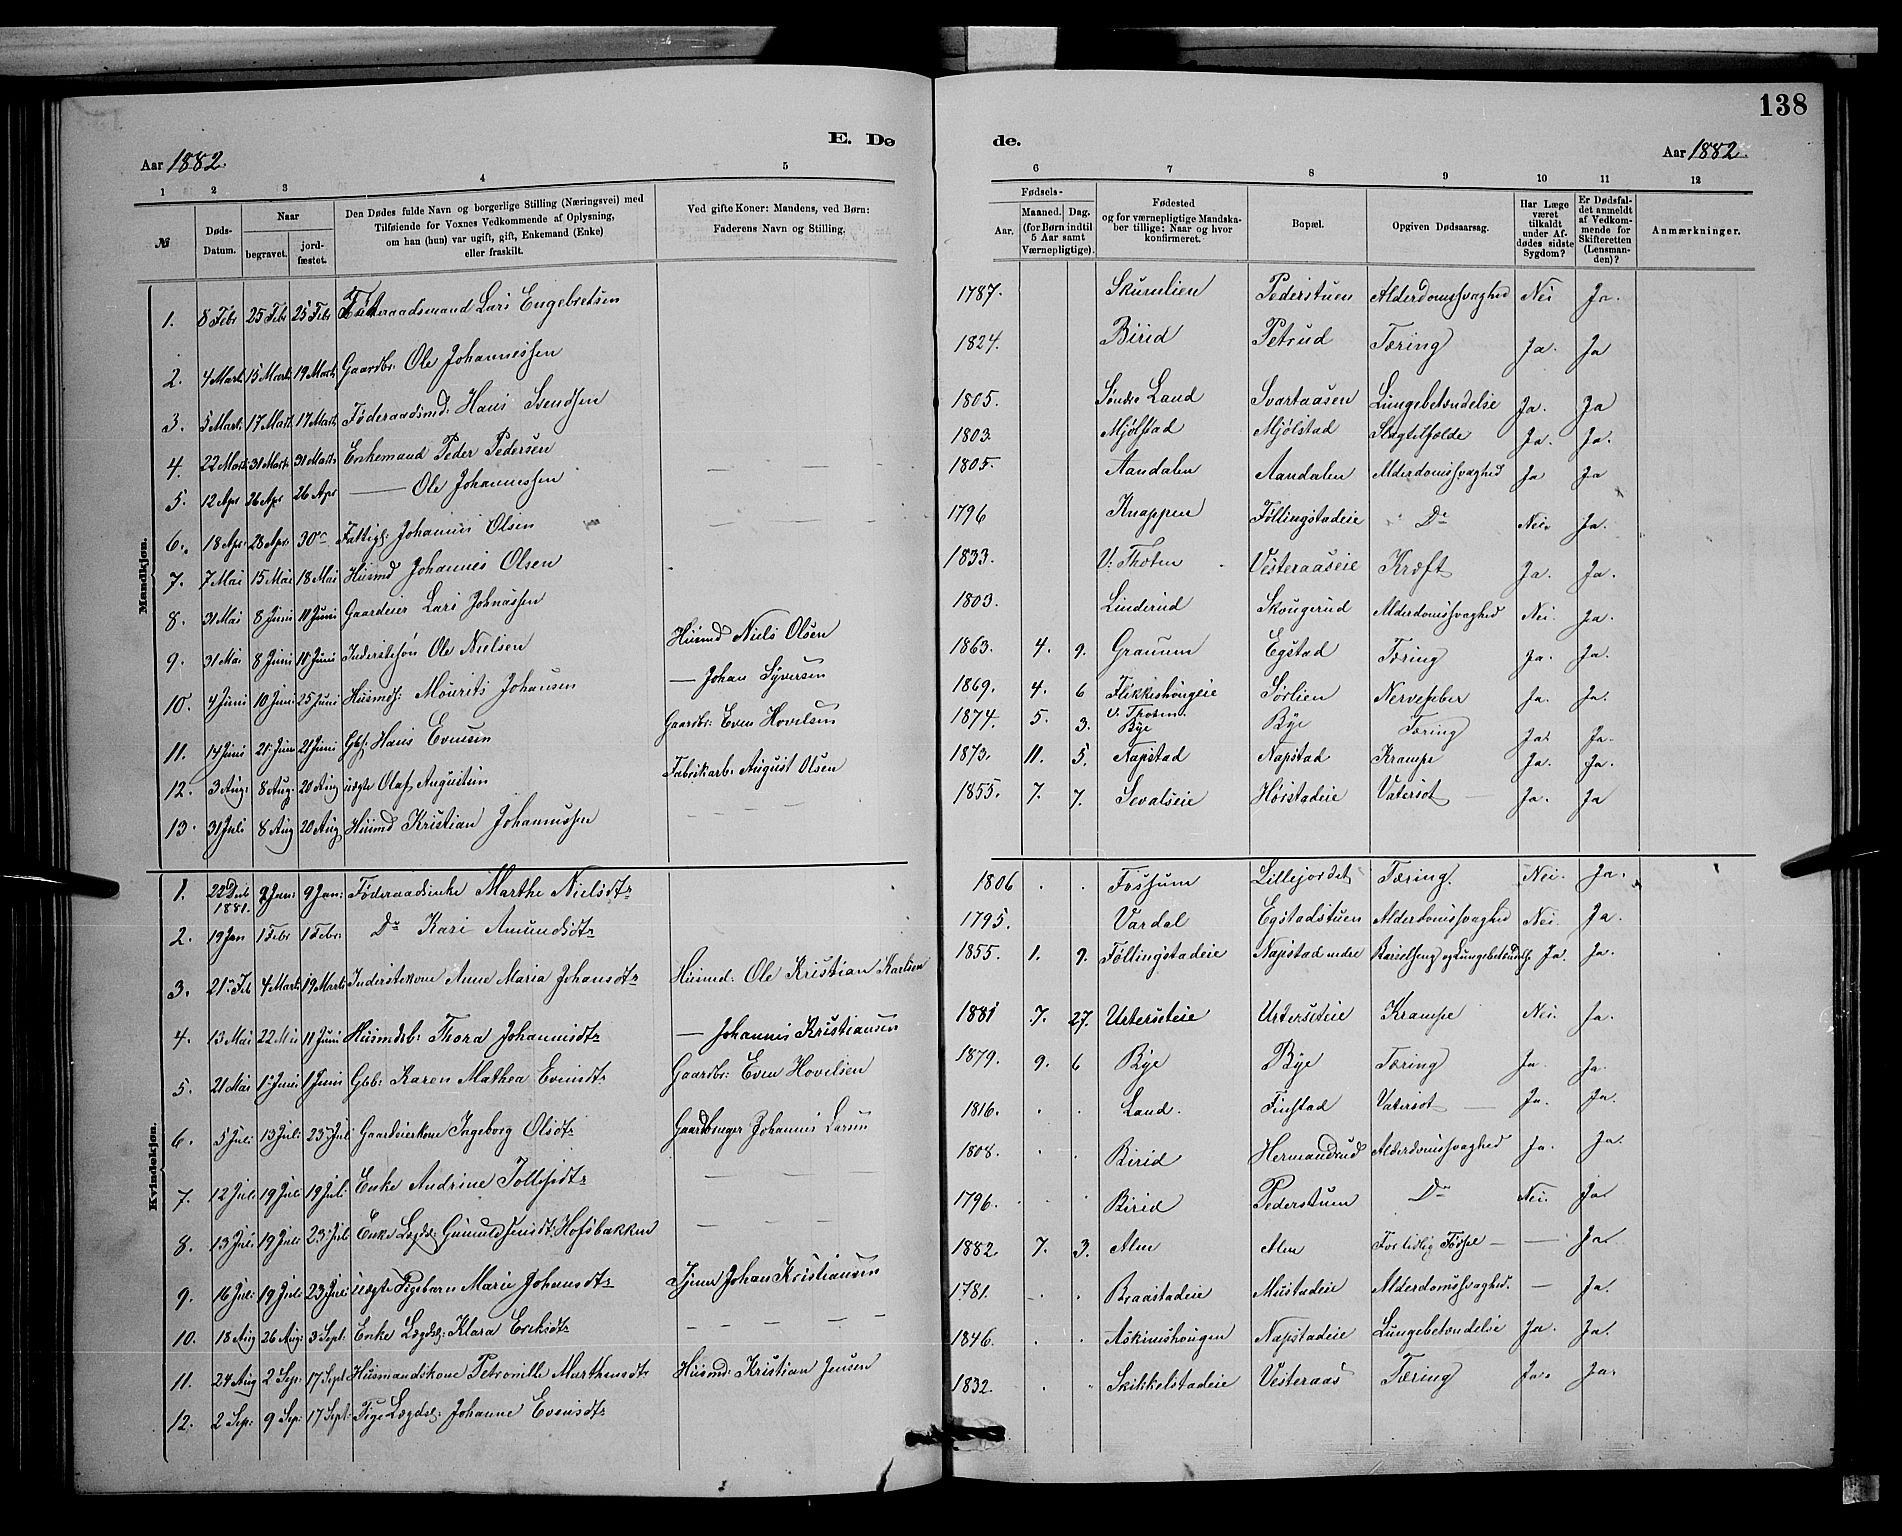 138
E. Dø de.
Aar 1882. Aar 1882.
1 2 3 4 5 6 7 8 9 10 11 12
№ Døds-Datum. Naar begravet. jordfæstet. Den Dødes fulde Navn og borgerlige Stilling (Næringsvei) med Tilføiende for Voxnes Vedkommende af Oplysning, om han (hun) var ugift, gift, Enkemand (Enke) eller fraskilt. Ved gifte Koner: Mandens, ved Børn: Faderens Navn og Stilling. Fødsels- Aar. Maaned. Dag. (for Børn indtil 5 Aar samt Værnepligtige). Fødested og for værnepligtige Mandskaber tillige: Naar og hvor konfirmeret. Bopæl. Opgiven Dødsaarsag. Har Læge været tilkaldt under Afdødes sidste Sygdom? Er Dødsfaldet anmeldt af Vedkommende for Skifteretten (Lensmanden)? Anmærkninger.
Mandkjøn.
1. 8 Febr 25 Febr 25 Febr Føderaadsmand Lars Engebretsen 1787. Skurnlien Pederstuen Alderdomssvaghed Nei Ja.
2. 4 Marts 15 Marts 19 Marts Gaardbr. Ole Johannessen 1824. Birid Petrud Tæring Ja. Ja
3. 5 Marts 17 Marts 17 Marts Føderaadsmd: Hans Svendsen 1805. Søndre Land Svartaasen Lungebetændelse Ja. Ja
4. 22 Marts 31 Marts 31 Marts Enkemand Peder Pedersen 1803. Mjølstad Mjølstad Slagtilfælde Ja. Ja.
5. 12 Apr 26 Apr 26 Apr — Ole Johannessen — — — 1805. Aandalen Aandalen Alderdomssvaghed Ja Ja
6. 18 Apr. 28 Apr. 30 Fattigl: Johannes Olsen — — — 1796 Knappen Føllingstadeie Do Nei. Ja.
7. 7 Mai 15 Mai 18 Mai Husmd Johannes Olsen 1833. V: Thoten Vesteraaseie Kræft Ja. Ja.
8. 31 Mai 8 Juni 11 Juni Gaardeier Lars Johnassen 1803. Linderud Skougerud Alderdomssvaghed Nei. Ja.
9. 31 Mai 8 Juni 11 Juni Inderstesøn Ole Nielsen Husmd Niels Olsen 1863. 4. 9. Graunm Egstad Tæring Ja. Ja.
10. 4 Juni 10 Juni 25 Juni Husmds: Mourits Johansen — Johan Syversen 1869. 4. 6 Flikkeshougeie Sørlien Nervefeber Ja. Ja.
11. 14 Juni 21 Juni 21 Juni Gbs: Hans Evensen Gaardbr: Even Hovelsen 1874. 5. 3. V. Thoten. Bye Bye Tæring Ja. Ja.
12. 3 Aug. 8 Aug. 20 Aug ægte Olaf Augustin Fabrikarb. August Olsen 1873. 11. 5. Napstad Napstad Krampe Ja. Ja.
13. 31 Juli 8 Aug 20 Aug Husmd Kristian Johannessen — — 1855. 7. 7. Sevalseie Hørstadeie Vatersot — Ja. Ja
Kvindekjøn.
1. 22 Deb 1881. 9 Jan: 9 Jan: Føderaadsenke Marthe Nielsdtr 1806 . . Fossum Lillejordet Tæring. Nei. Ja.
2. 19 Jan 1 Febr 1 Febr. Do Kari Amundsdtr 1795. Vardal Egstadstuen Alderdomssvaghed Nei. Ja.
3. 21 Feb 4 Marts 19 Marts Inderstekone Anne Maria Johansdtr Husmd: Ole Kristian Karlsen 1855. 1. 9. Føllingstadeie Napstad nedre Barselseng og Lungebetændelse Ja. Ja.
4. 13 Mai 22 Mai 11 Juni Husmdsb: Thora Johannesdtr — Johannes Kristiansen 1881 7. 27. Nei. Krampe Ja.
5. 21 Mai 1 Juni 1 Juni Gbb: Karen Mathea Evensdtr Gaardbr: Even Hovelsen 1879. 9. 6 Bye Bye Tæring Ja. Ja.
6. 5 Juli 13 Juli 23 Juli Gaardeierkone Ingeborg Olsdtr Gaardbruger Johannes Larsen 1816. . . Land. Finstad Vatersot — Ja. Ja.
7. 12 Juli 19 Juli 19 Juli Enke Andrine Tollefsdtr — — — 1808. . . Birid Hermandrud Alderdomssvaghed Ja. Ja.
8. 13 Juli 19 Juli 23 Juli Enke Lægdsl: Hofsbakken — — — 1796. . . Birid Pederstuen Do Nei. Ja.
9. 16 Juli 19 Juli 23 Juli ægte Pigebarn Marie Johansdtr Tjener Johan Kristiansen 1882. 7. 3. Alm Alm For tidlig Fødsel — — Ja.
10. 18 Aug 26 Aug: 3 Sept: Enke Lægdsl: Klara Eriksdtr — — — — — 1781. — . Braastadeie Mustadeie Alderdomssvaghed. — Ja.
11. 24 Aug 2 Sep. 17 Sept Husmandskone Petronille Marthinsdtr Husmd: Kristian Jensen 1846. . . Askimshougen Napstadeie Lungebetændelse Ja. Ja.
12. 2 Sep: 9 Sep: 17 Sept: Pige Lægdsl: Johanne Evensdtr 1832. . . Skikkelstadeie Vesteraas Tæring Ja. Ja.